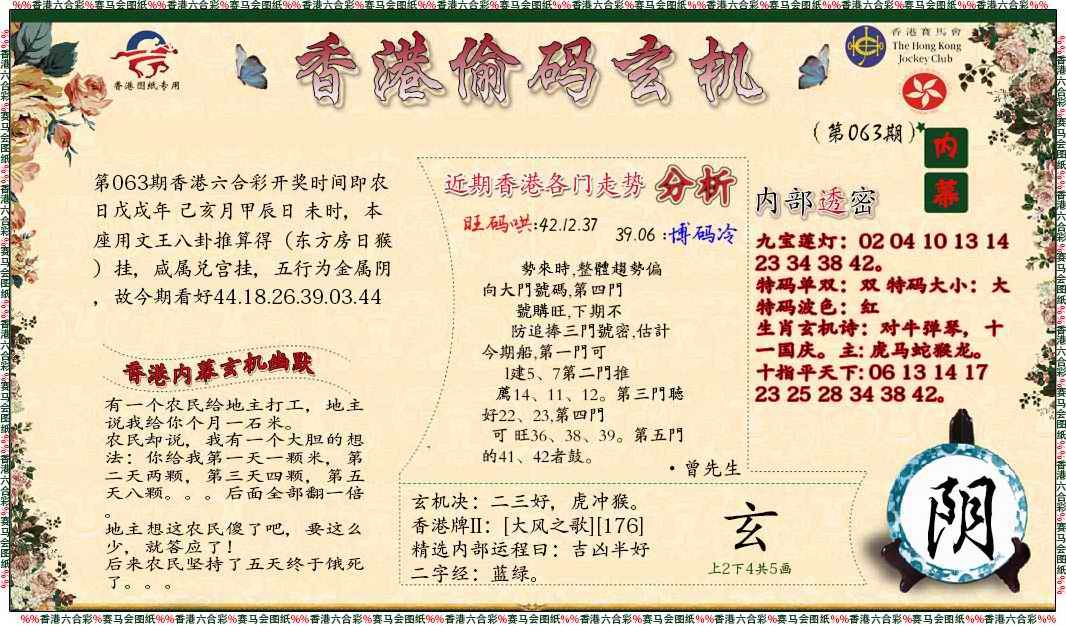 %%香港六合彩%赛马会图纸%%香港六合彩%赛马会图纸%%香港六合彩%赛马会图纸%%香港六合彩%赛马会图纸%%香港六合彩%赛马会图纸%%香港六合彩%赛马会图纸%%香港六合彩%%
香港图纸专用
香港偷码玄机
香港賽馬會
The Hong Kong
Jockey Club
(第063期)
内幕
第063期香港六合彩开奖时间即农
日戊戌年 己亥月甲辰日 未时，本
座用文王八卦推算得（东方房日猴
）挂，咸属兑宫挂，五行为金属阴
，故今期看好44.18.26.39.03.44
香港内幕玄机幽默
有一个农民给地主打工，地主
说我给你个月一石米。
农民却说，我有一个大胆的想
法：你给我第一天一颗米，第
二天两颗，第三天四颗，第五
天八颗。。。后面全部翻一倍
。
地主想这农民傻了吧，要这么
少，就答应了！
后来农民坚持了五天终于饿死
了。。。
近期香港各门走势 分析
旺码哄:42.12.37
39.06 :博码冷
勢來時,整體趨勢偏
向大門號碼,第四門
號購旺,下期不
防追捧三門號密,估計
今期船,第一門可
1建5、7第二門推
薦14、11、12。第三門聴
好22、23,第四門
可 旺36、38、39。第五門
的41、42者鼓。
·曾先生
玄机决：二三好，虎冲猴。
香港牌II：[大风之歌][176]
精选内部运程曰：吉凶半好
二字经：蓝绿。
玄
上2下4共5画
内部透密
九宝莲灯：02 04 10 13 14
23 34 38 42。
特码单双：双 特码大小：大
特码波色：红
生肖玄机诗：对牛弹琴，十
一国庆。主: 虎马蛇猴龙。
十指平天下: 06 13 14 17
23 25 28 34 38 42。
阴
%%香港六合彩%赛马会图纸%%香港六合彩%赛马会图纸%%香港六合彩%赛马会图纸%%香港六合彩%赛马会图纸%%香港六合彩%赛马会图纸%%香港六合彩%赛马会图纸%%香港六合彩%%